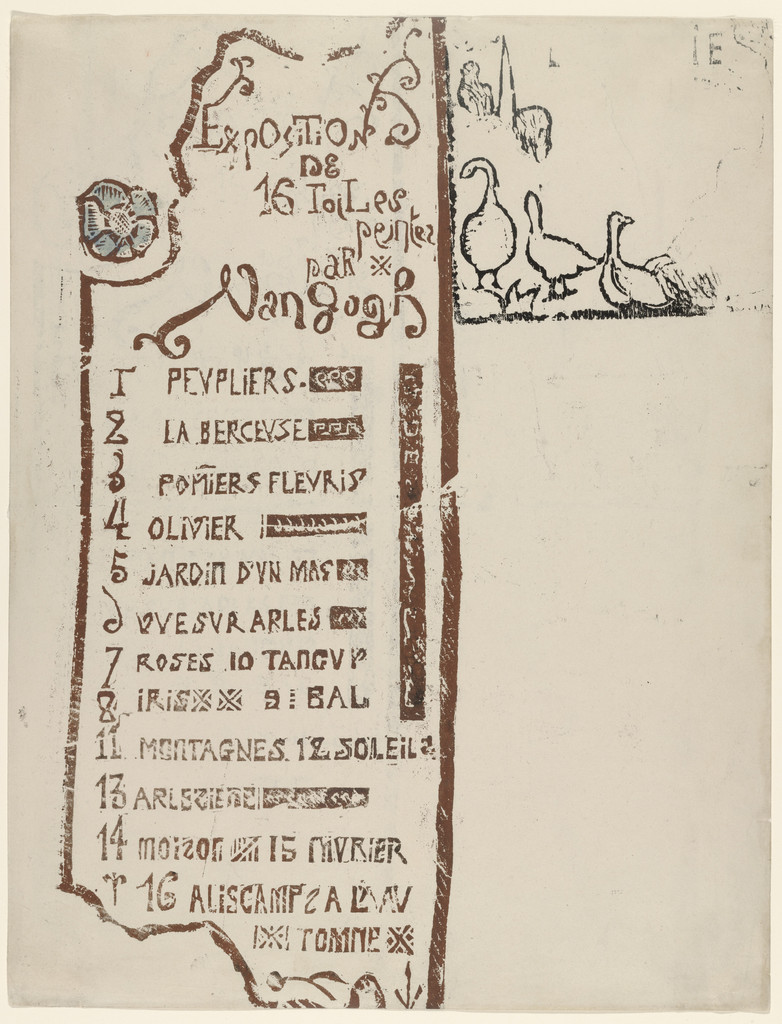 EXPOSITION
DE
16 ToiLes
peintes
paR
Vangogh
1 PEVPLIERS.
2 LA BERCEVSE
3 POMIERS FLEVRIS
4 OLIVIER
5 JARDIN D'VN MAS
6 VVE SVR ARLES
7 ROSES 10 TANGVY
8 IRIS 9: BAL
11 MONTAGNES. 12 SOLEILS
13 ARLESIENE
14 MOISON 15 MVRIER
16 ALISCAMPS A L'AV
TOMNE
IE